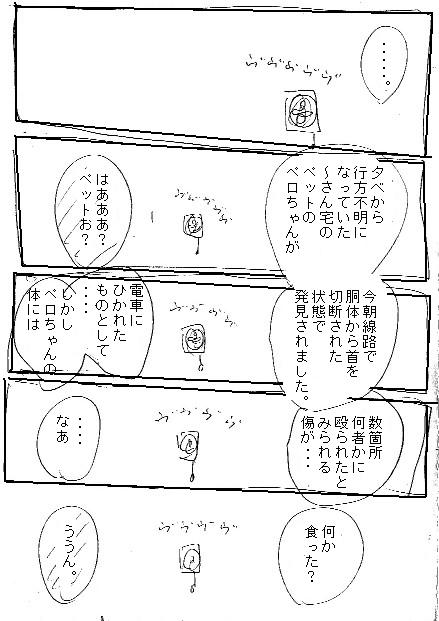 ・・・・・。
ヴヴヴヴヴ
夕べから
行方不明に
なっていた
～さん宅の
ペットの
ベロちゃんが
ヴヴヴヴヴ
はあああ？
ペットお？
今朝線路で
胴体から首を
切断された
状態で
発見されました。
ヴヴヴヴヴ
電車に
ひかれた
ものとして
・・・・
しかし
ベロちゃんの
体には
数箇所
何者かに
殴られたと
みられる
傷が・・
ヴヴヴヴ
・・・
なあ
何か
食った？
ヴヴヴヴ
ううん。